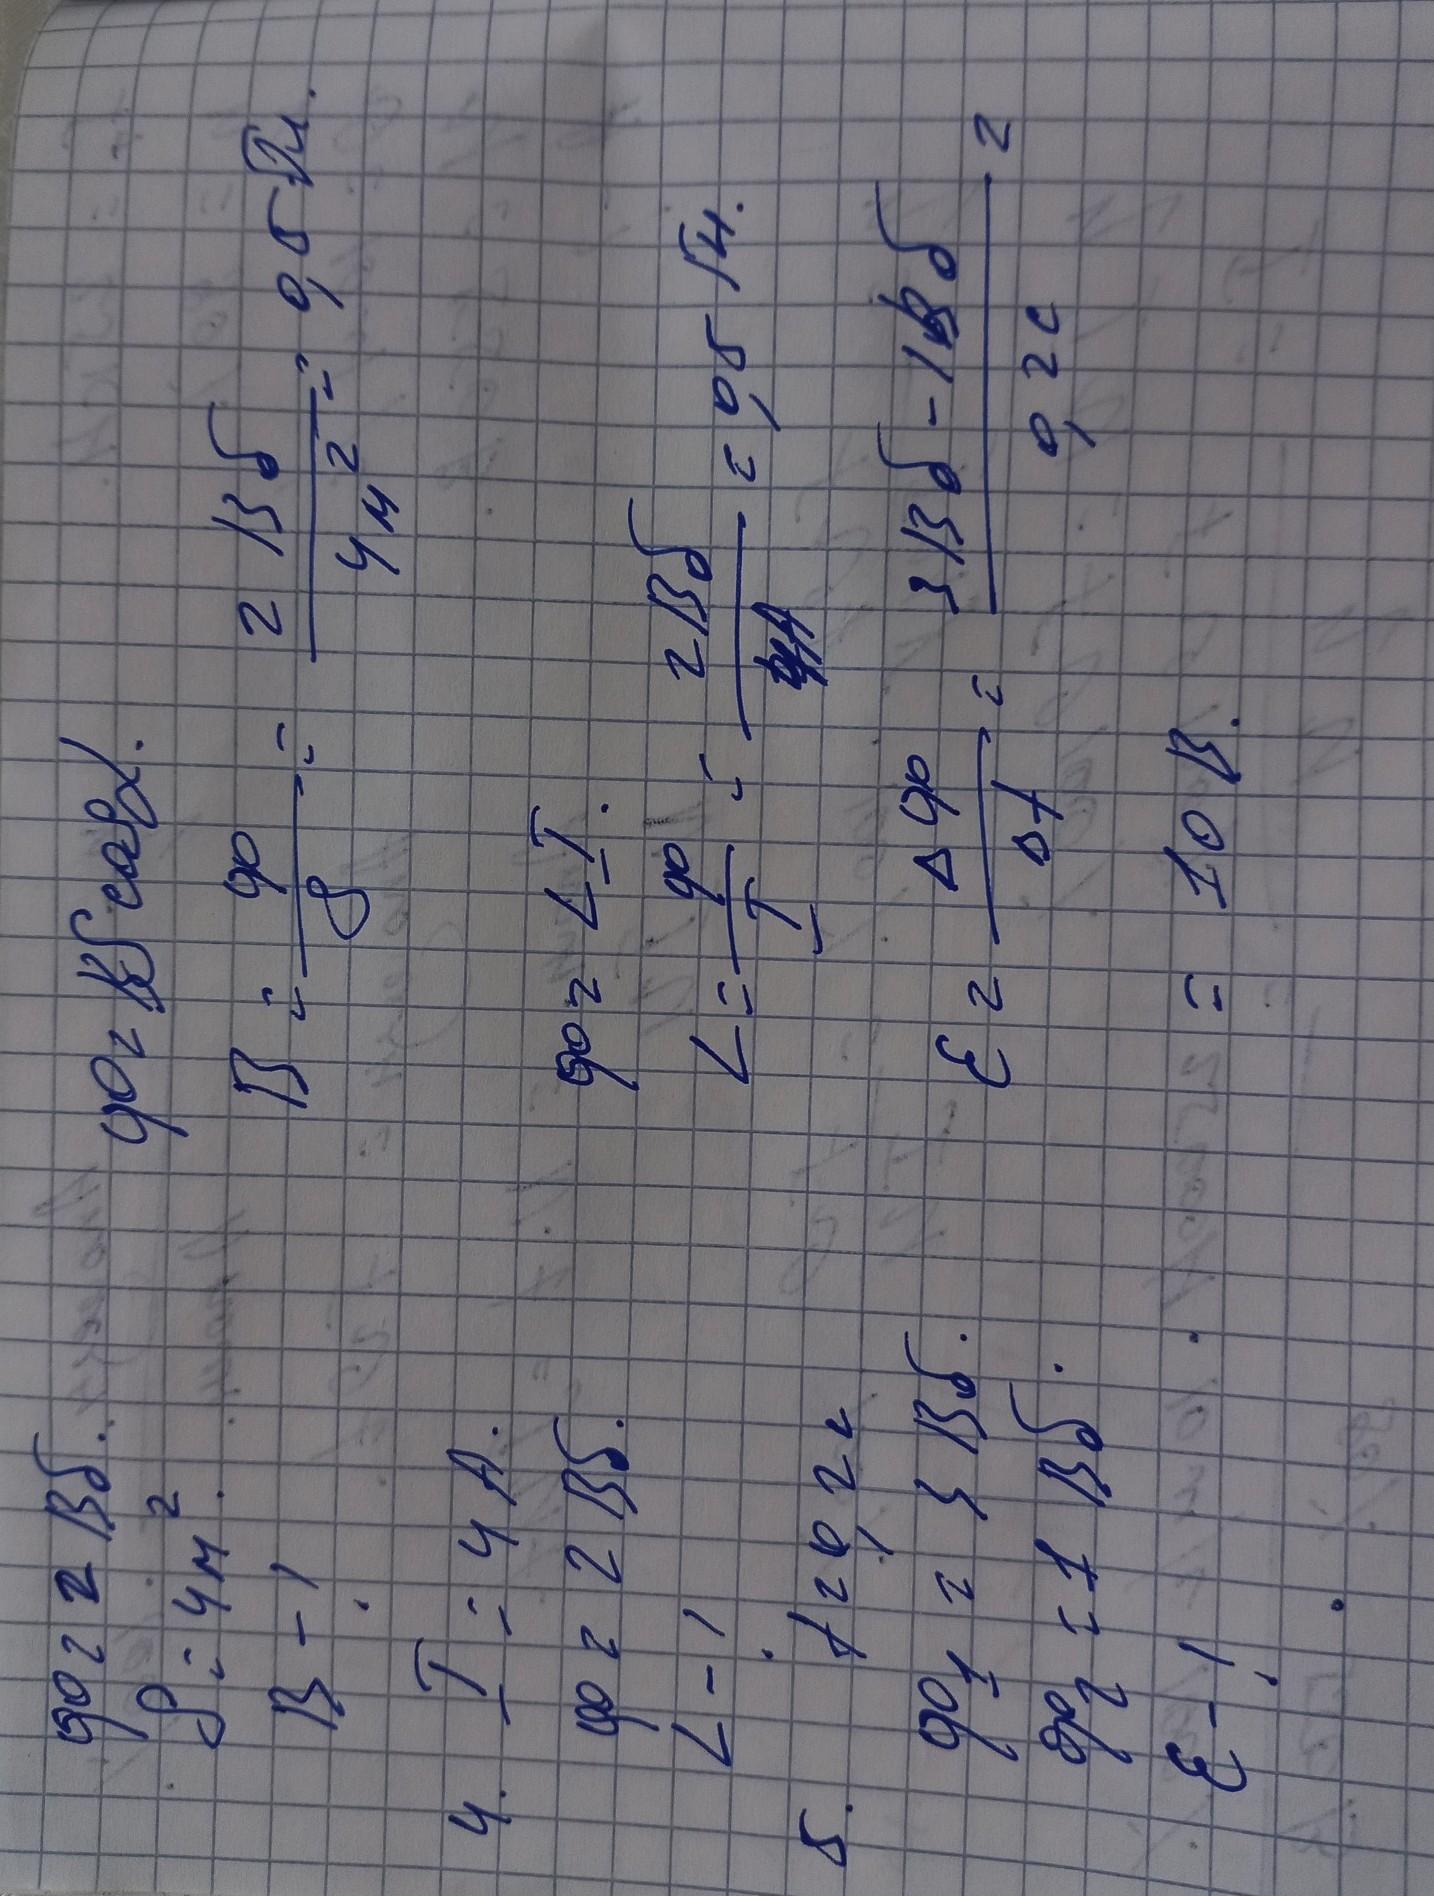 φ = 2 Вб.
S = 4 м²
B - ?
φ = BS cosα.
B = φ/S = 2 Вб/4 м² = 0,5 Тл.
4. I = 4 А.
φ = 2 Вб.
L - ?
φ = LI.
L = φ/I = 2 Вб/4А = 0,5 Гн.
5. t = 0,2 с
φ₁ = 3 Вб.
φ₂ = 1 Вб.
ε - ?
ε = Δφ/Δt = 3 Вб - 1 Вб/0,2 с =
= 10 В.